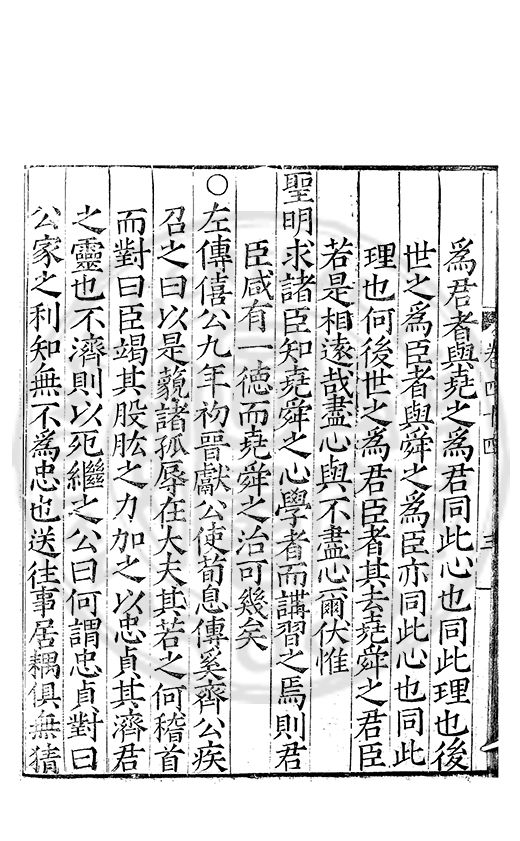 為君者與堯之為君同此心也同此理也後
世之為臣者與舜之為臣亦同此心也同此
理也何後世之為君臣者其去堯舜之君臣
若是相遠哉盡心與不盡心爾伏惟
聖明求諸臣知堯舜之心學者而講習之焉則君
臣咸有一徳而堯舜之治可幾矣
○左傳僖公九年初晉獻公使荀息傅奚齊公疾
召之曰以是藐諸孤辱在大夫其若之何稽首
而對曰臣竭其股肱之力加之以忠貞其濟君
之靈也不濟則以死繼之公曰何謂忠貞對曰
公家之利知無不為忠也送往事居耦俱無猜
卷四十四